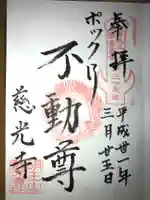 奉拝
平成廿一年
三月廿五日
ポックリ
不動尊
慈光寺